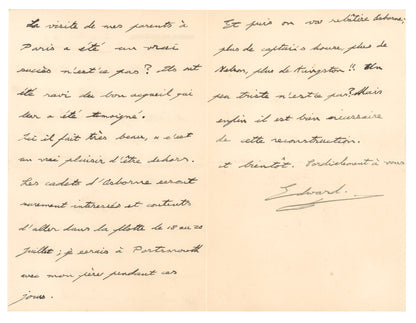 La visite de mes parents à
Paris a été un vrai
succès n'est ce pas? Ils ont
été ravis du bon accueil qui
leur a été témoigné.
Ici il fait très beau, & c'est
un vrai plaisir d'être dehors.
Les cadets d'Osborne seront
surement intéressés et contents
d'aller dans la flotte le 18 au 20
Juillet; je serais à Portsmouth
avec mon père pendant ces
jours.
Et puis on va rebâtir Osborne;
plus de captain's house, plus de
Nelson, plus de Kingston!! Un
peu triste n'est ce pas? Mais
enfin il est bon
de cette reconstruction.
et bientôt. Cordialement à vous
Edward.